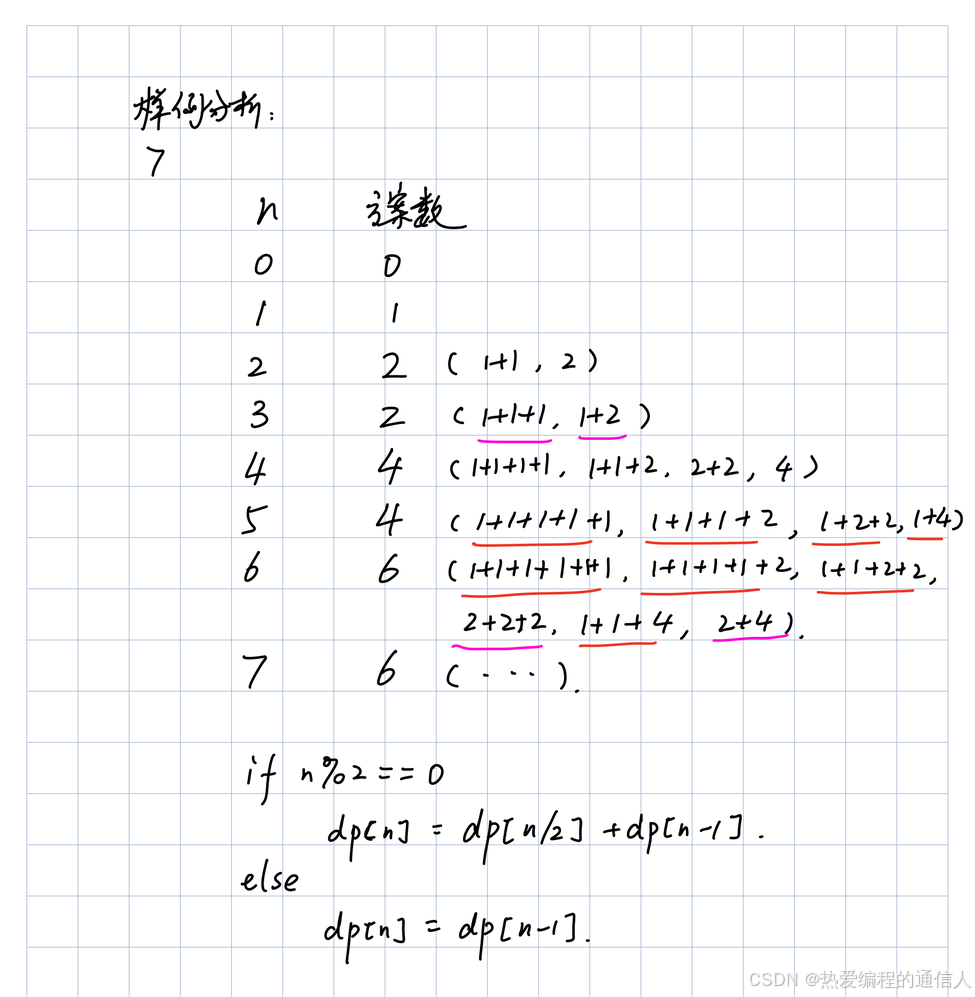 样例分析:
7
n 方案数
0 0
1 1
2 2 (1+1, 2)
3 2 (1+1+1, 1+2)
4 4 (1+1+1+1, 1+1+2, 2+2, 4)
5 4 (1+1+1+1+1, 1+1+1+2, 1+2+2, 1+4)
6 6 (1+1+1+1+1+1, 1+1+1+1+2, 1+1+2+2,
2+2+2, 1+1+4, 2+4).
7 6 (···).
if n%2==0
dp[n] = dp[n/2] +dp[n-1].
else
dp[n] = dp[n-1].
CSDN @热爱编程的通信人